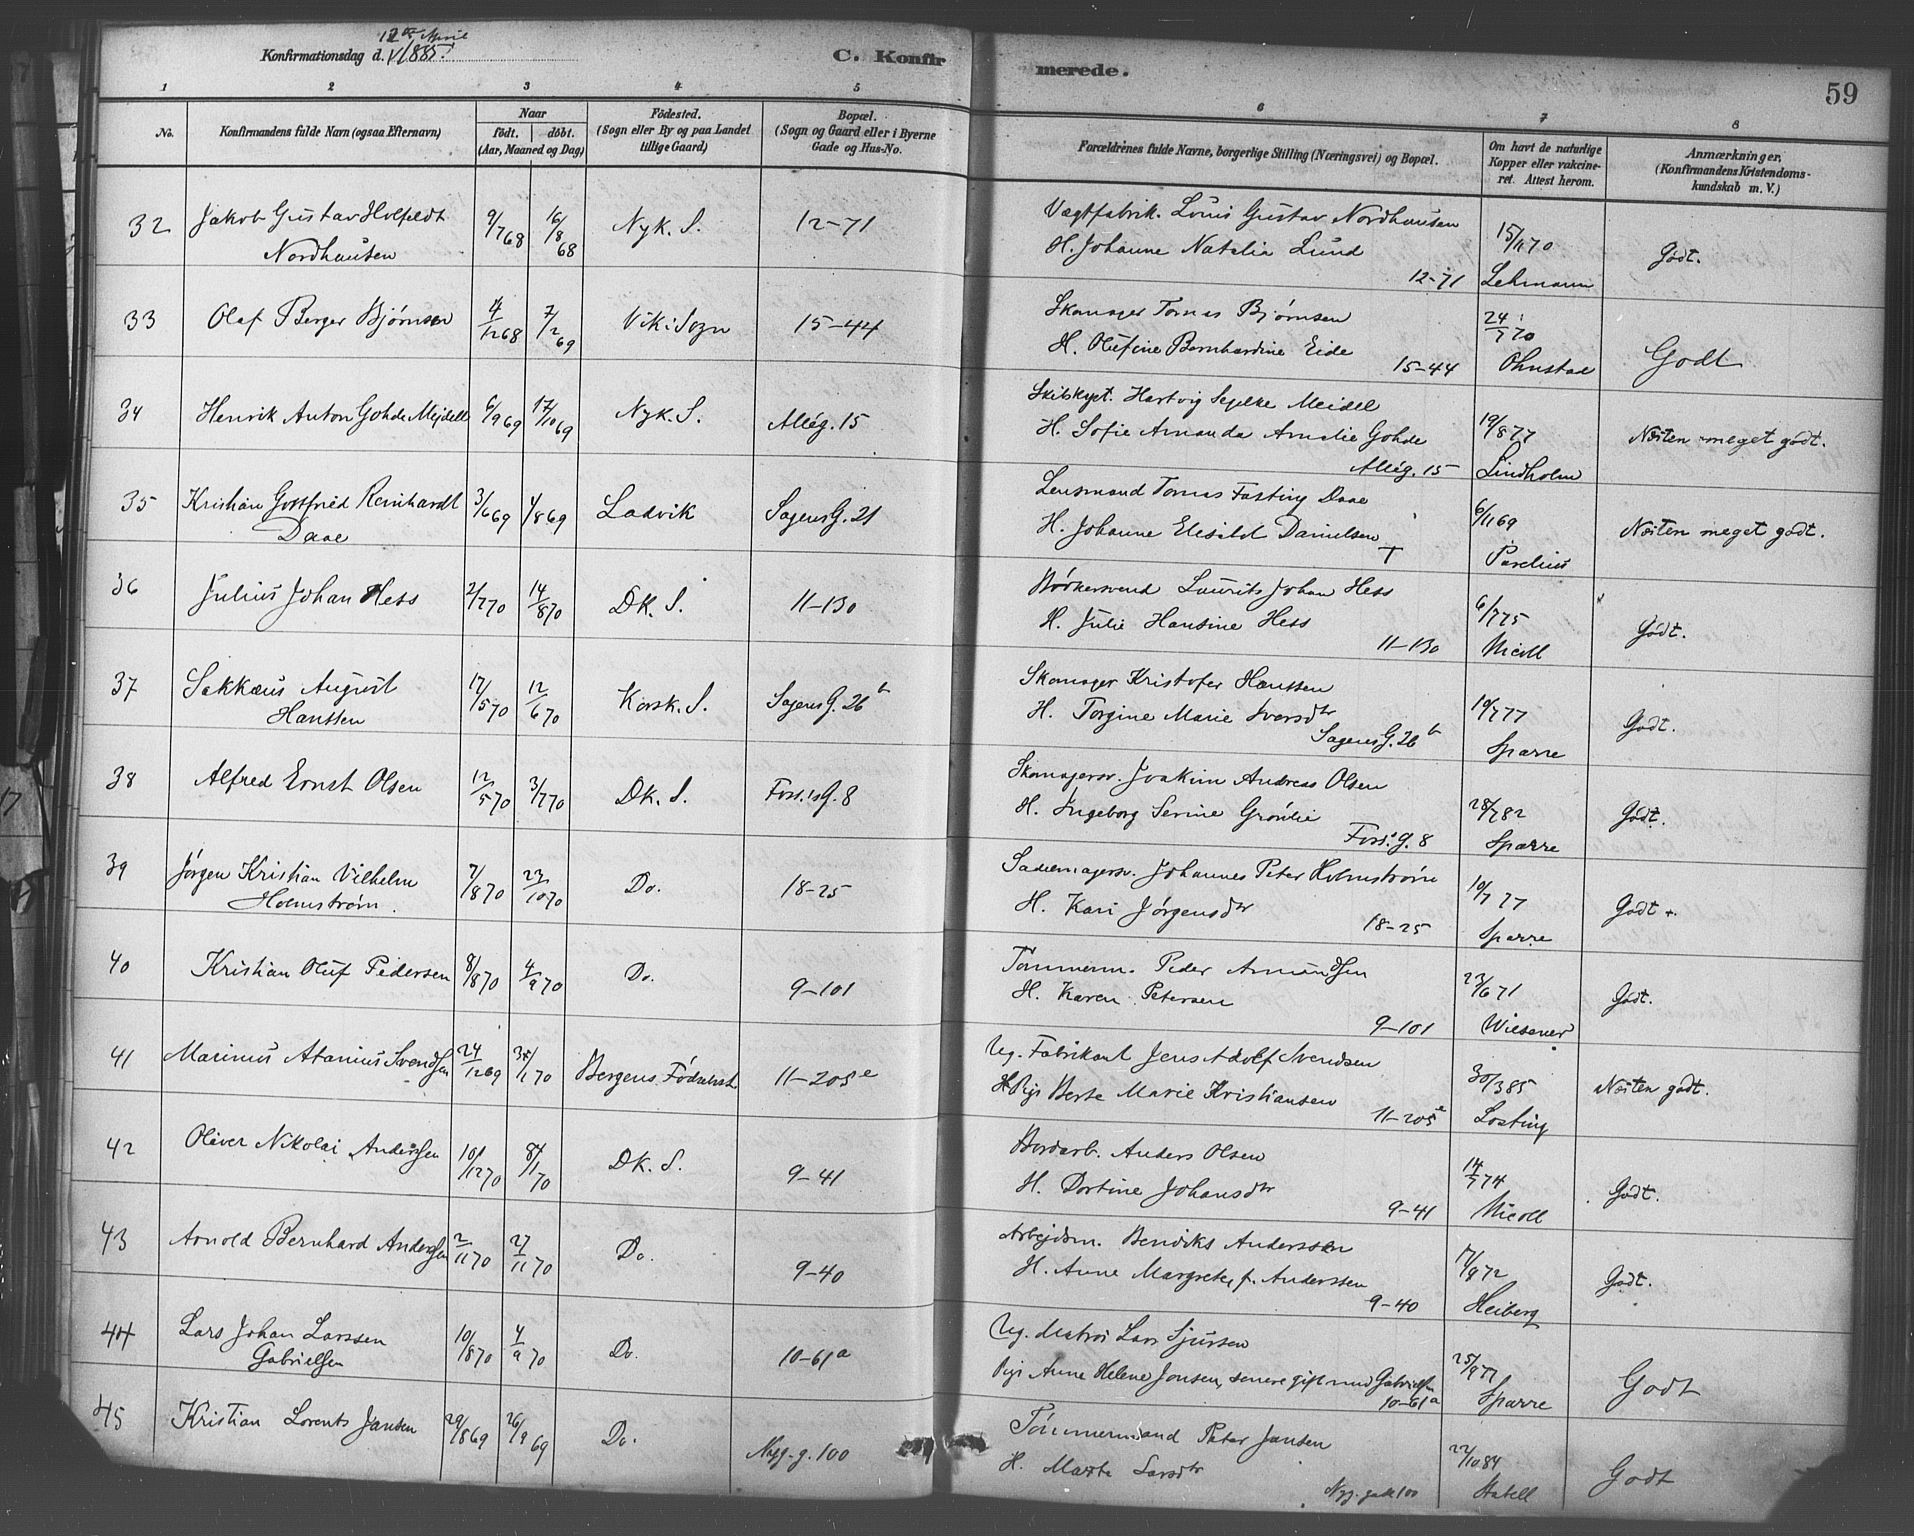 Konfirmationsdag d. 12te April 1885.
C. Konfirmerede.
59
1 2 3 4 5 6 7 8
No.
Konfirmandens fulde Navn (ogsaa Efternavn)
Naar
födt. döbt.
(Aar, Maaned og Dag)
Födested.
(Sogn eller By og paa Landet
tillige Gaard)
Bopæl.
(Sogn og Gaard eller i Byerne
Gade og Hus-No.
Forældrenes fulde Navne, borgerlige Stilling (Næringsvei) og Bopæl.
Om havt de naturlige
Kopper eller vakcine-
ret. Attest herom.
Anmærkninger.
(Konfirmandens Kristendoms-
kundskab m. V.)
32 Jakob Gustav Holfeldt
Nordhausen
9/7 68 16/8 68 Nyk. S. 12-71
Vægtfabrik. Louis Gustav Nordhausen
H. Johanne Natalia Lund
12-71
15/11 70
Lehmann
Godt.
33 Olaf Berger Bjørnsen 4/12 68 7/2 69 Vik i Sogn 15-44
Skomager Tomas Bjørnsen
H. Olufine Bernhardine Eide
15-44
24/7 70
Ohnstad
Godt
34 Henrik Anton Gohde Mejdell 6/9 69 17/10 69 Nyk. S. Allég. 15
Hartvig Sejelke Meidel
H. Sofie Amanda Amalie Gohde
Allég. 15
19/8 77
Lindholm
Næsten meget godt.
35 Kristian Gottfried Reinhardt
Daae
3/6 69 1/8 69 Ladvik SagensG. 21
Lensmand Tomas Fasting Daae
H. Johanne Elesild Danielsen
6/11 69
Parelius
Næsten meget godt.
36 Julius Johan Hess 2/7 70 14/8 70 DK. S. 11-130
Bødkersvend Laurits Johan Hess
H. Julie Hansine Hess
11-130
6/7 75
Nicoll
Godt.
37 Sakkæus August
Hanssen
17/5 70 12/6 70 Korsk. S. SagensG. 26b
Skomager Kristofer Hanssen
H. Torgine Marie Iversdtr
SagensG. 26b
19/7 77
Sparre
Godt.
38 Alfred Ernst Olsen 12/5 70 3/7 70 DK. S. Foss.'s G. 8
Skomagersv. Joakim Andreas Olsen
H. Ingeborg Serine Grønlie
Foss.s G. 8
28/7 82
Sparre
Godt.
39 Jørgen Kristian Vilhelm
Holmstrøm.
7/8 70 23/10 70 Do. 18-25
Sadelmagersv. Johannes Peter Holmstrøm
H. Kari Jørgensdtr
18-25
10/7 77
Sparre
Godt +.
40 Kristian Oluf Pedersen 8/8 70 4/9 70 Do. 9-101
Tømmerm. Peder Amundsen
H. Karen Petersen
9-101
23/6 71
Wiesener
Godt.
41 Marinus Atanius Svendsen 24/12 69 /1 70 Bergens Fødselsst. 11-205e
Ug. Fabrikarb. Jens Adolf Svendsen
Pige Berte Marie Kristiansen
11-205e
30/3 85
Losting
Næsten godt.
42 Oliver Nikolai Anderssen 10/12 70 8/1 70 DK. S. 9-41
Bordarb. Anders Olsen
H. Dortine Johansdtr
9-41
14/7 74
Nicoll
Godt.
43 Arnold Bernhard Anderssen 2/11 70 27/11 70 Do. 9-40
Arbejdsm. Bendiks Anderssen
H. Anne Margrete, f. Anderssen
9-40
17/9 72
Heiberg
Godt.
44 Lars Johan Larssen
Gabrielsen
10/8 70 4/9 70 Do. 10-61a
Ug. Matros Lars Sjursen
Pige Anne Helene Jonsen, senere gift med Gabrielsen
10-61a
25/9 77
Sparre
Godt
45 Kristian Lorents Jansen 29/8 69 26/9 69 Do. Nyg.g. 100
Tømmermand Peter Jansen
H. Marta Larsdtr
Nyg. gade 100
22/10 84
Godt